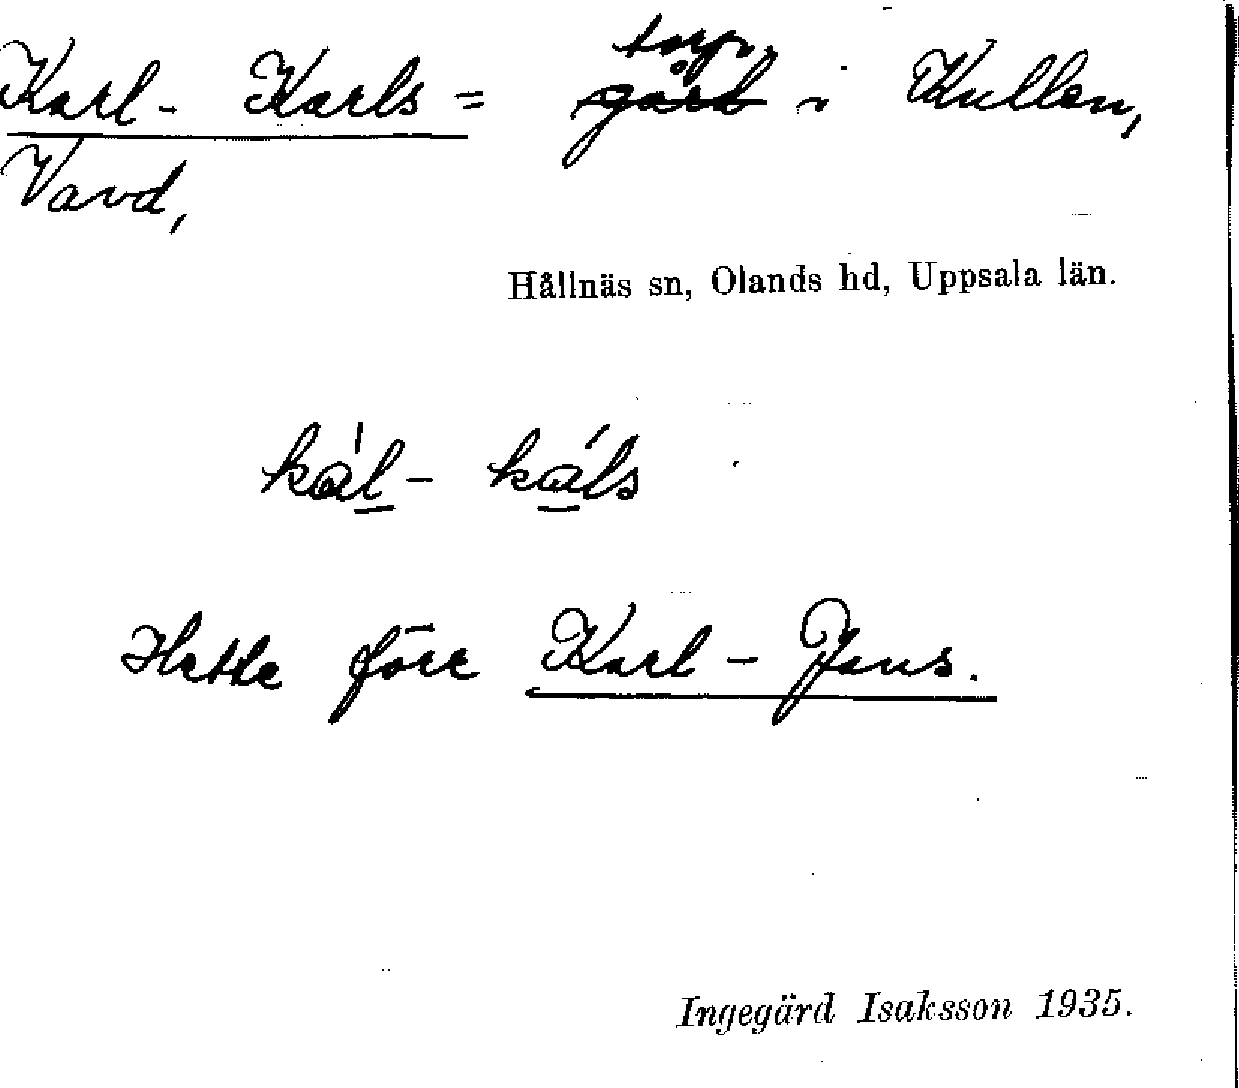 Karl-Karls = torp, i Kullen,
Vavd,
Hållnäs sn, Olands hd, Uppsala län.
kàl- káls
Hette förr Karl-Jans.
Ingegärd Isaksson 1935.